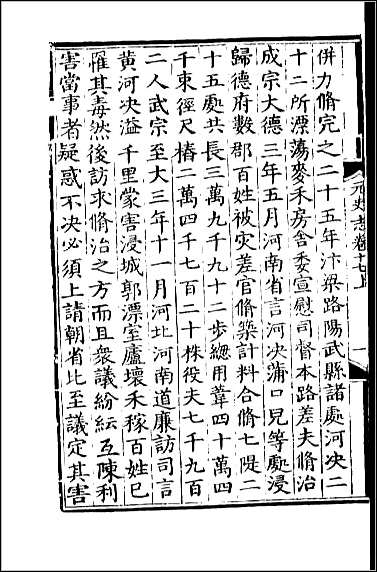 元史志卷十七上
一
併力脩完之二十五年汴梁路陽武縣諸處河决二
十二所漂蕩麥禾房舍委宣慰司督本路差夫脩治
成宗大德三年五月河南省言河决蒲口兒等處浸
歸德府數郡百姓被灾差官脩築計料合脩七隄二
十五處共長三萬九千九十二步緫用葦四十萬四
千束徑尺樁二萬四千七百二十株役夫七千九百
二人武宗至大三年十一月河北河南道廉訪司言
黄河决溢千里蒙害浸城郭漂室廬壞禾稼百姓巳
罹其毒然後訪求脩治之方而且衆議紛紜互陳利
害當事者疑惑不决必須上請朝省比至議定其害